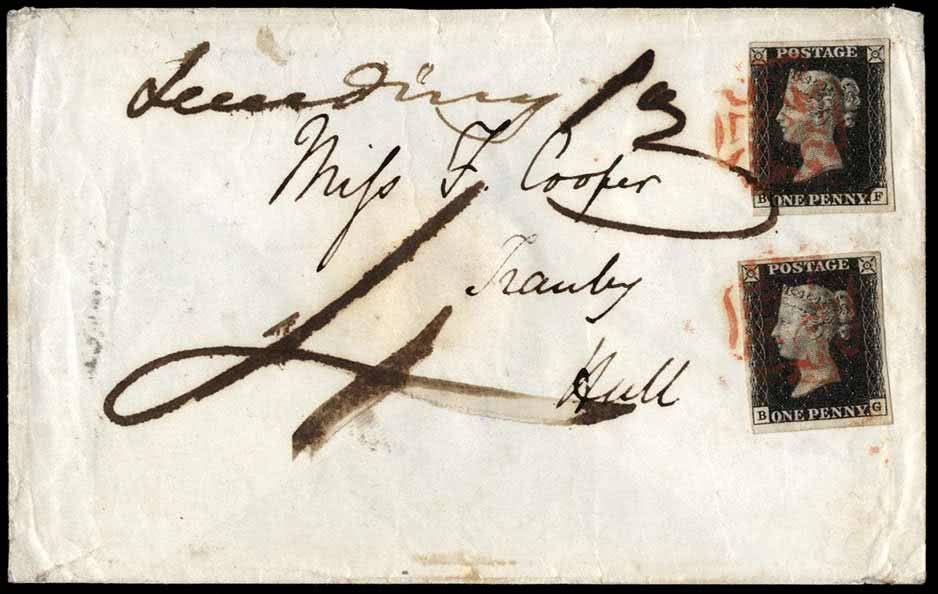 POSTAGE
Miss F. Cooper
B ONE PENNY. F
4
Tranby
POSTAGE
Hull
B ONE PENNY. G